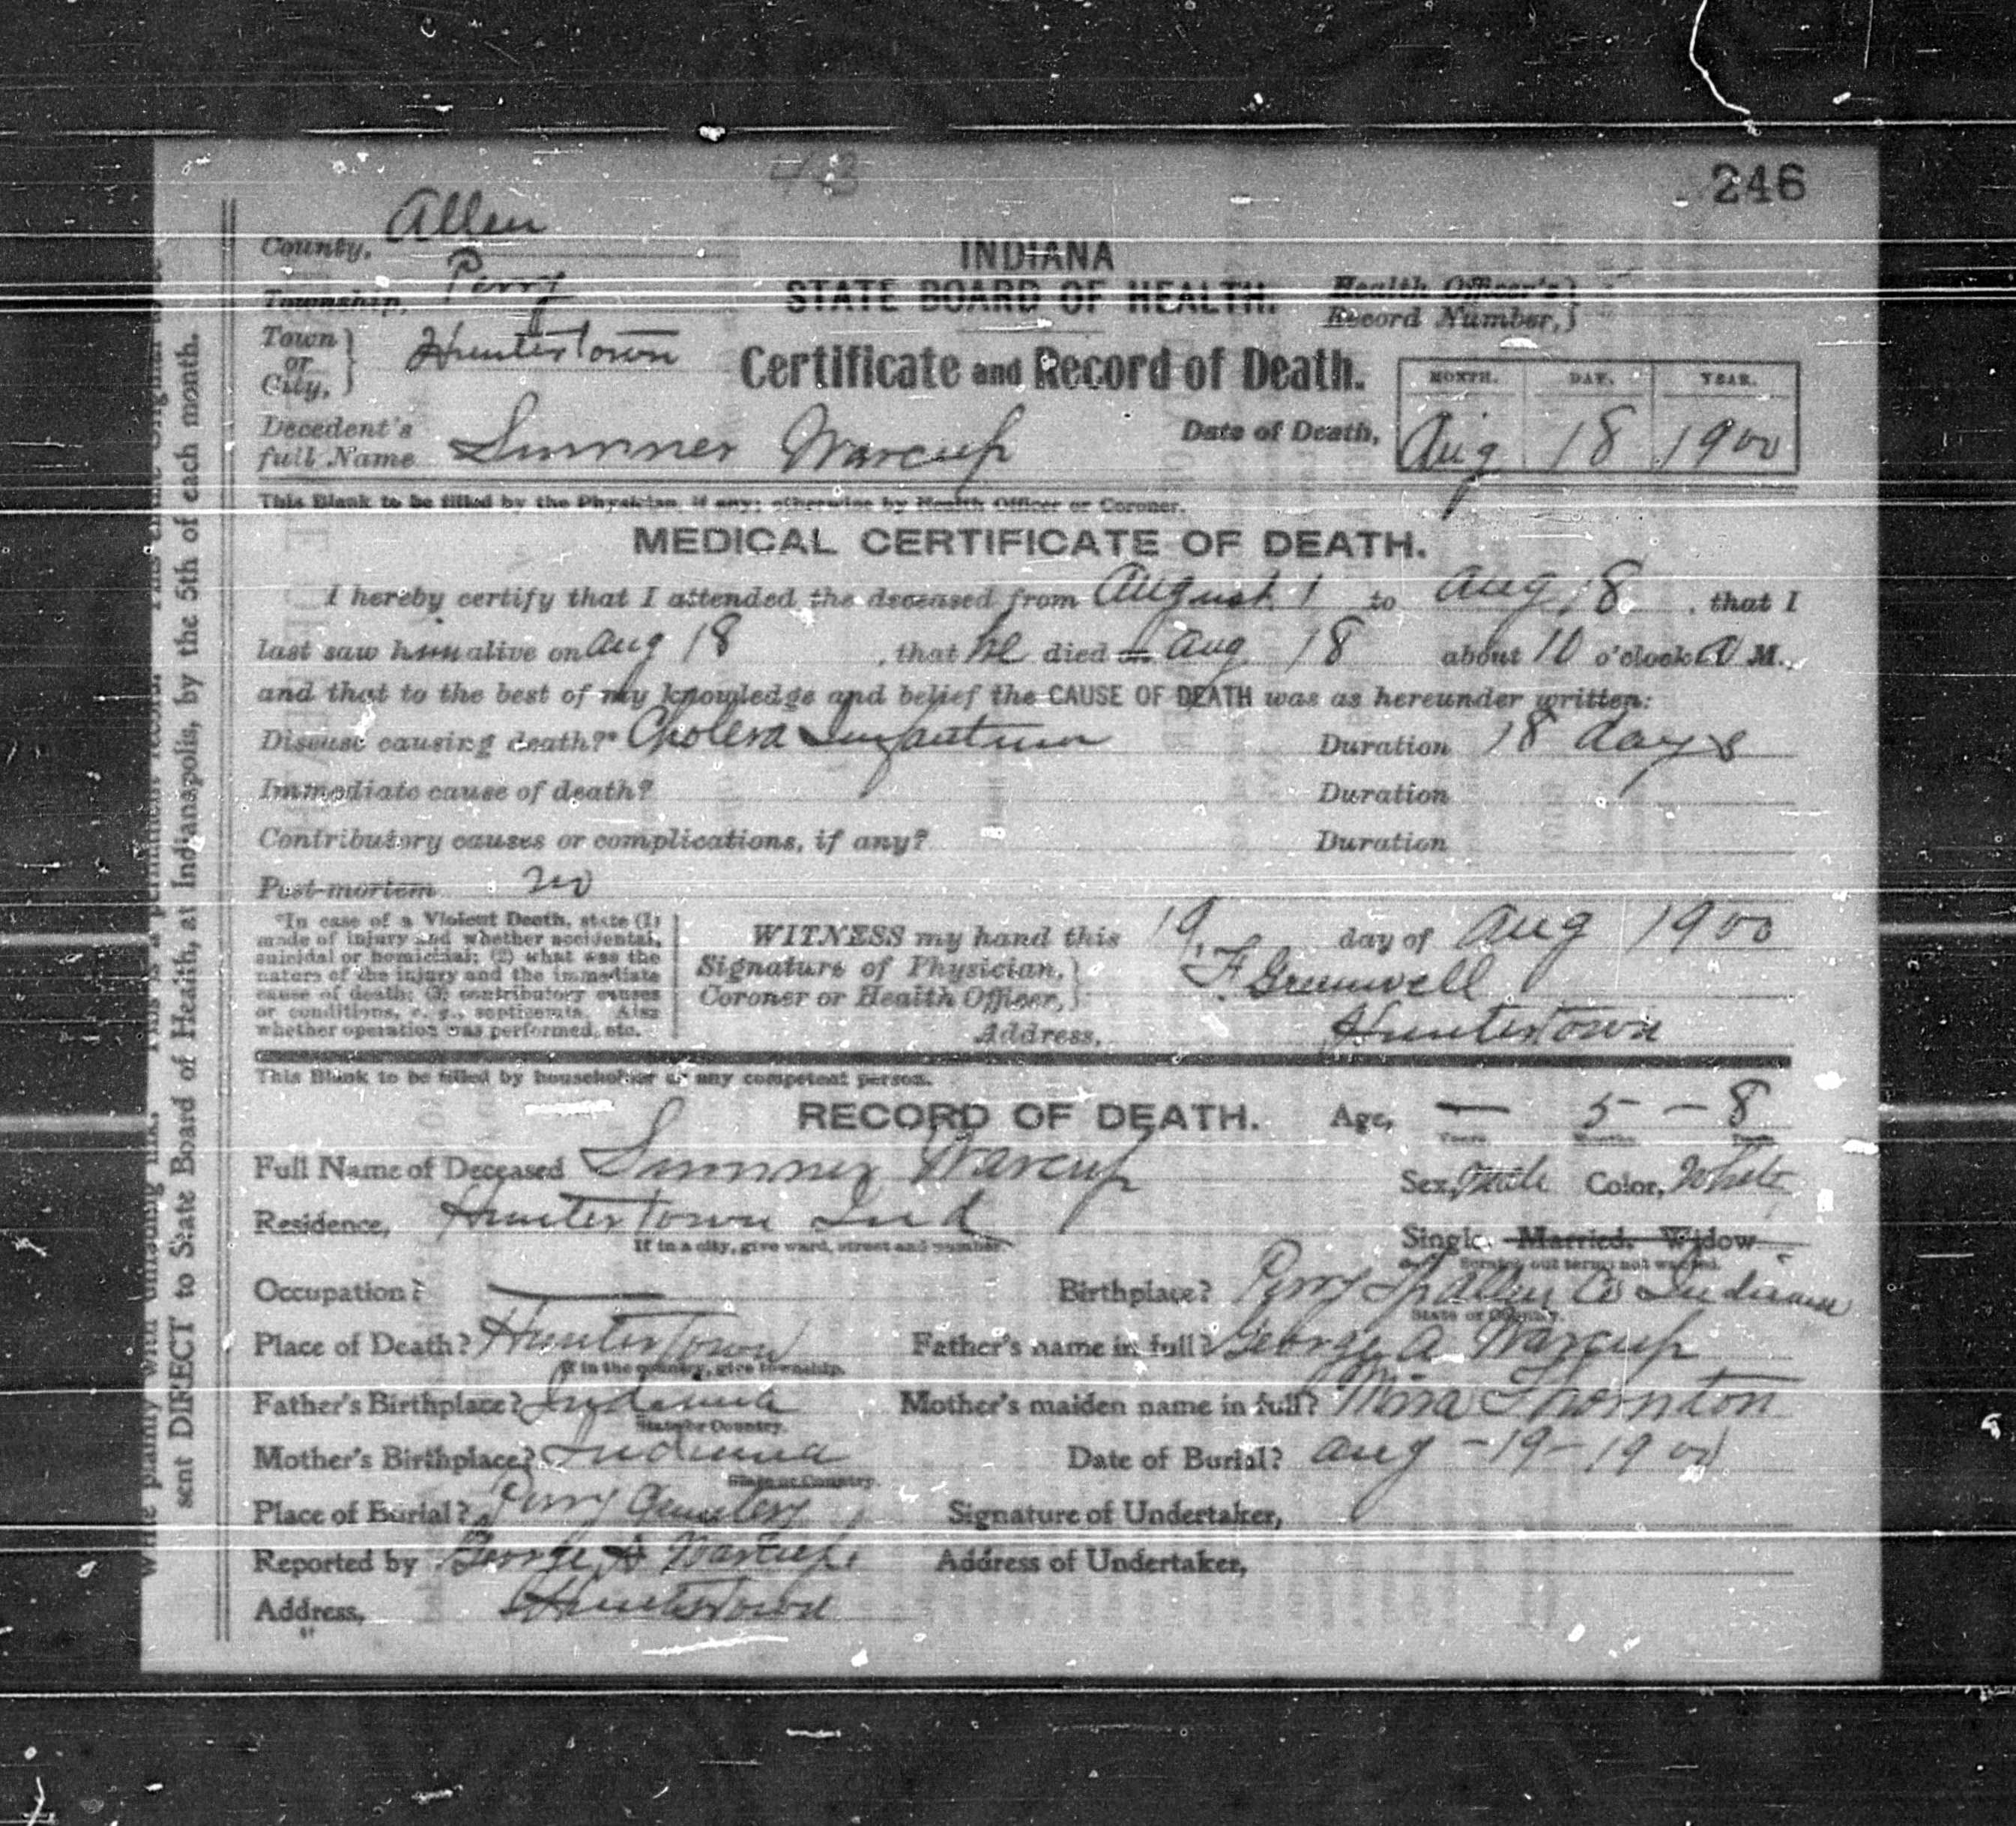 443
246
County, Allen
INDIANA
Township, Perry
STATE BOARD OF HEALTH.
Health Officer's
Record Number,
Town or City, Huntertown
Certificate and Record of Death.
MONTH. DAY. YEAR.
Decedent's full Name Sumner Warcup
Date of Death, Aug 18 1900
This Blank to be filled by the Physician, if any; otherwise by Health Officer or Coroner.
MEDICAL CERTIFICATE OF DEATH.
I hereby certify that I attended the deceased from August 1 to Aug 18, that I
last saw him alive on Aug 18, that he died on Aug 18 about 10 o'clock A M.,
and that to the best of my knowledge and belief the CAUSE OF DEATH was as hereunder written:
Disease causing death?* Cholera Infantum Duration 18 days
Immediate cause of death? Duration
Contributory causes or complications, if any? Duration
Post-mortem no
*In case of a Violent Death, state (1)
made of injury and whether accidental,
suicidal or homicidal; (2) what was the
nature of the injury and the immediate
cause of death; (3) contributory causes
or conditions, e. g., septicemia. Also
whether operation was performed, etc.
WITNESS my hand this 19 day of Aug 1900
Signature of Physician,
Coroner or Health Officer, F. Greenwell
Address, Huntertown
This Blank to be filled by householder or any competent person.
RECORD OF DEATH. Age, — 5 - 8
Years Months Days
Full Name of Deceased Sumner Warcup
Sex, Male Color, White
Residence, Huntertown Ind
If in a city, give ward, street and number.
Single. Married. Widow
Scratch out terms not wanted.
Occupation? —
Birthplace? Perry Tp Allen Co Indiana
State or Country.
Place of Death? Huntertown
If in the country, give township.
Father's name in full? George A Warcup
Father's Birthplace? Indiana
State or Country.
Mother's maiden name in full? Mina Thornton
Mother's Birthplace? Indiana
State or Country.
Date of Burial? Aug - 19 - 1900
Place of Burial? Perry Cemetery
Signature of Undertaker,
Reported by George A Warcup.
Address of Undertaker,
Address, Huntertown
sent DIRECT to State Board of Health, at Indianapolis, by the 5th of each month.